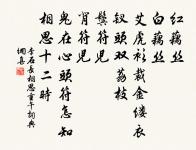 红藕丝
白藕丝
艾虎衫裁金缕衣
钗头双荔枝
鬓符儿
背符儿
鬼在心头符怎知
相思十二时
李石长相思重午詞典
網